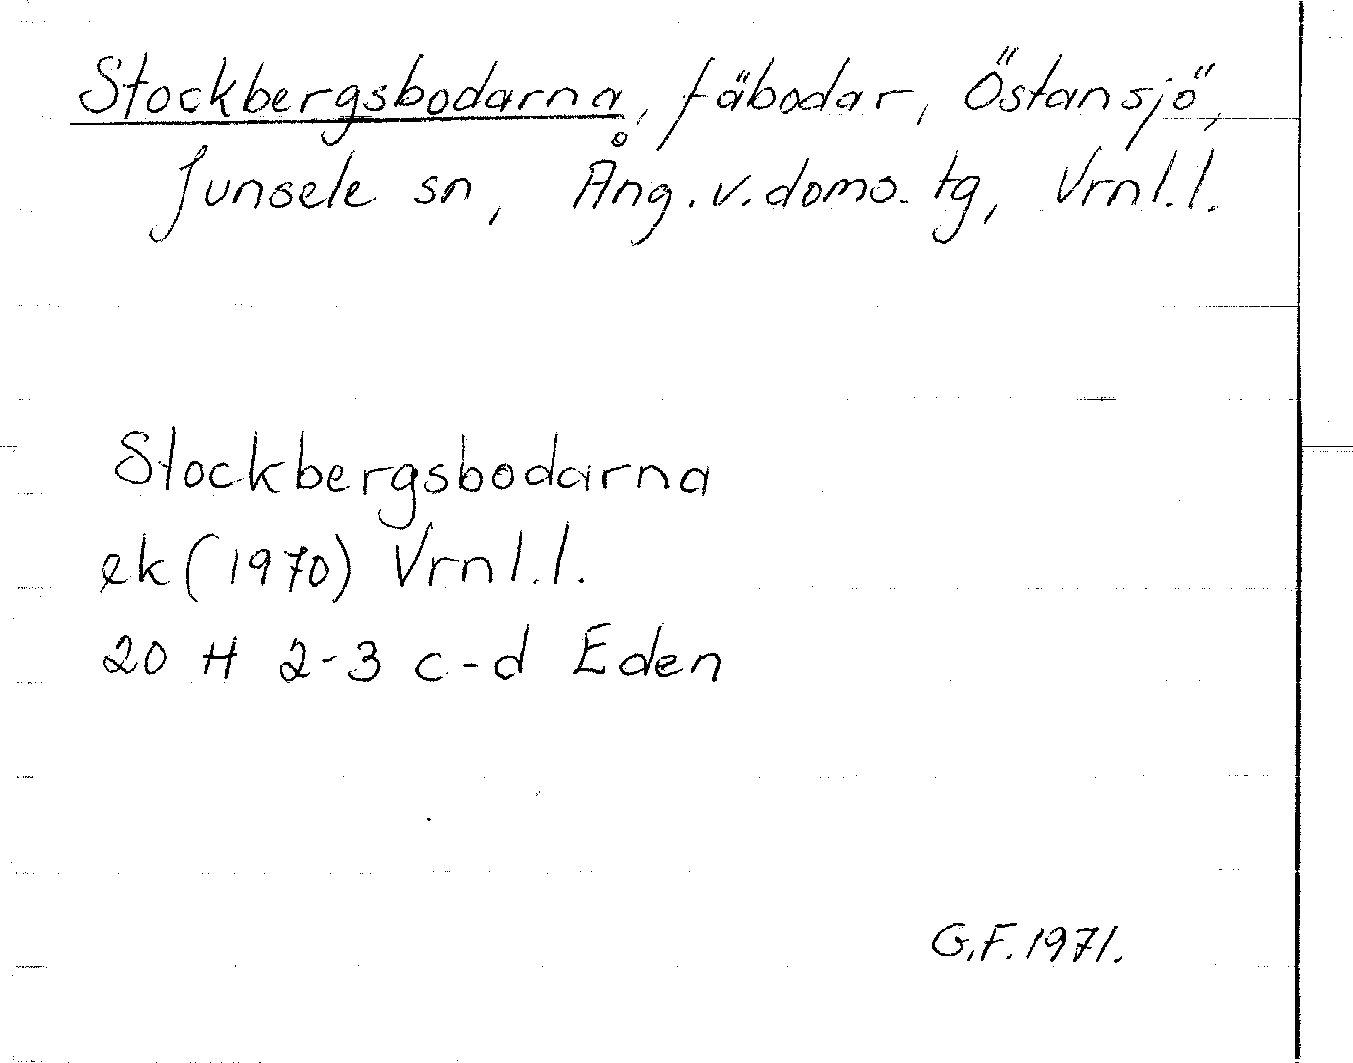 Stockbergsbodarna, fäbodar, Östansjö,
Junsele sn, Ång. v. doms. tg, Vrnl. l.
Stockbergsbodarna
ek (1970) Vrnl. l.
20 H 2-3 c-d Eden
G.F. 1971.